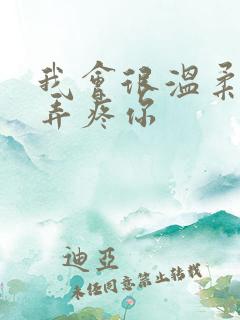 我會很溫柔
弄疼你
迪亞
未经同意禁止转载